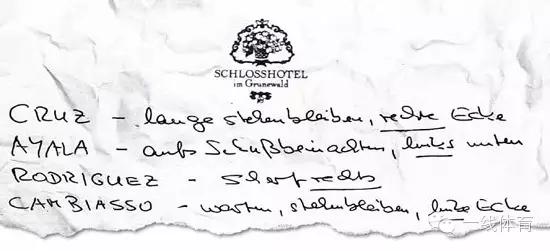 SCHLOSSHOTEL
im Grunewald
CRUZ - lange stehenbleiben, rechte Ecke
AYALA - aufs Schußbein achten, links unten
RODRIGUEZ - scharf rechts
CAMBIASSO - warten, stehenbleiben, linke Ecke
一线体育